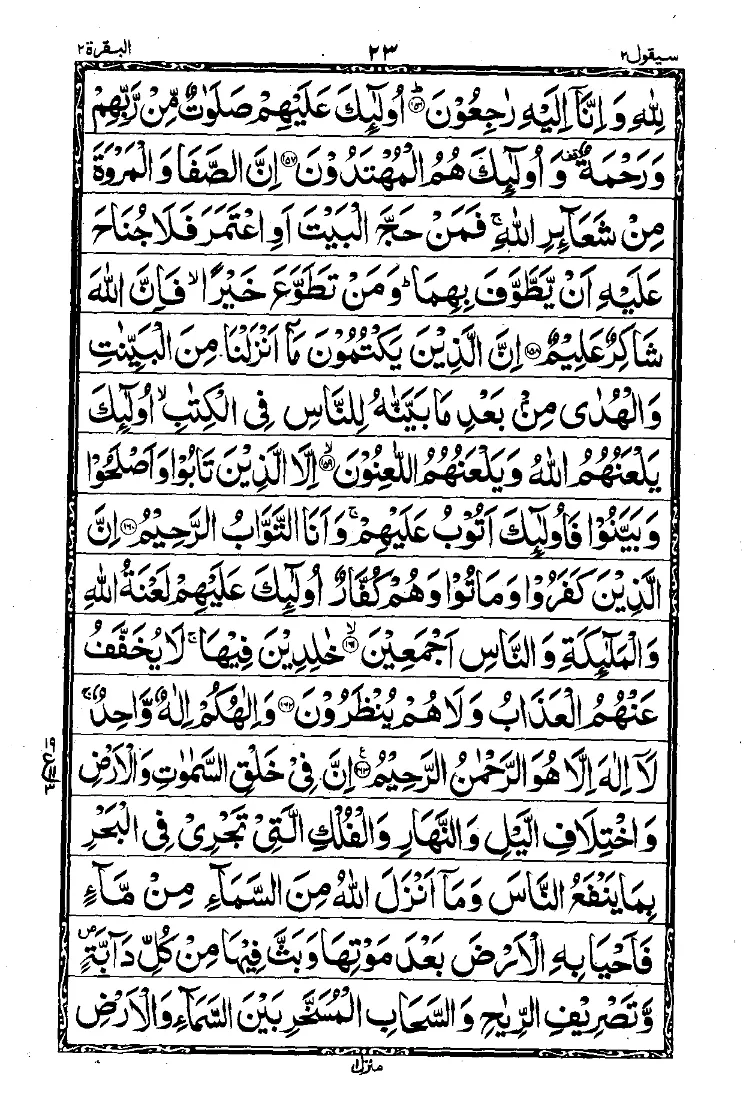 سيقول ٢ ٢٣ البقرة ٢
لِلّٰهِ وَ اِنَّاۤ اِلَيْهِ رٰجِعُوْنَ ؕ﴿۱۵۶﴾ اُولٰٓئِكَ عَلَيْهِمْ صَلَوٰتٌ مِّنْ رَّبِّهِمْ
وَ رَحْمَةٌ ۟ وَ اُولٰٓئِكَ هُمُ الْمُهْتَدُوْنَ ﴿۱۵۷﴾ اِنَّ الصَّفَا وَ الْمَرْوَةَ
مِنْ شَعَآئِرِ اللّٰهِ ۚ فَمَنْ حَجَّ الْبَيْتَ اَوِ اعْتَمَرَ فَلَا جُنَاحَ
عَلَيْهِ اَنْ يَّطَّوَّفَ بِهِمَا ؕ وَ مَنْ تَطَوَّعَ خَيْرًا ۙ فَاِنَّ اللّٰهَ
شَاكِرٌ عَلِيْمٌ ﴿۱۵۸﴾ اِنَّ الَّذِيْنَ يَكْتُمُوْنَ مَاۤ اَنْزَلْنَا مِنَ الْبَيِّنٰتِ
وَ الْهُدٰى مِنْۢ بَعْدِ مَا بَيَّنّٰهُ لِلنَّاسِ فِى الْكِتٰبِ ۙ اُولٰٓئِكَ
يَلْعَنُهُمُ اللّٰهُ وَ يَلْعَنُهُمُ اللّٰعِنُوْنَ ۙ﴿۱۵۹﴾ اِلَّا الَّذِيْنَ تَابُوْا وَ اَصْلَحُوْا
وَ بَيَّنُوْا فَاُولٰٓئِكَ اَتُوْبُ عَلَيْهِمْ ۚ وَ اَنَا التَّوَّابُ الرَّحِيْمُ ﴿۱۶۰﴾ اِنَّ
الَّذِيْنَ كَفَرُوْا وَ مَاتُوْا وَ هُمْ كُفَّارٌ اُولٰٓئِكَ عَلَيْهِمْ لَعْنَةُ اللّٰهِ
وَ الْمَلٰٓئِكَةِ وَ النَّاسِ اَجْمَعِيْنَ ۙ﴿۱۶۱﴾ خٰلِدِيْنَ فِيْهَا ۚ لَا يُخَفَّفُ
عَنْهُمُ الْعَذَابُ وَ لَا هُمْ يُنْظَرُوْنَ ﴿۱۶۲﴾ وَ اِلٰهُكُمْ اِلٰهٌ وَّاحِدٌ ۚ
لَاۤ اِلٰهَ اِلَّا هُوَ الرَّحْمٰنُ الرَّحِيْمُ ﴿۱۶۳﴾ اِنَّ فِيْ خَلْقِ السَّمٰوٰتِ وَ الْاَرْضِ
وَ اخْتِلَافِ الَّيْلِ وَ النَّهَارِ وَ الْفُلْكِ الَّتِيْ تَجْرِيْ فِى الْبَحْرِ
بِمَا يَنْفَعُ النَّاسَ وَ مَاۤ اَنْزَلَ اللّٰهُ مِنَ السَّمَآءِ مِنْ مَّآءٍ
فَاَحْيَا بِهِ الْاَرْضَ بَعْدَ مَوْتِهَا وَ بَثَّ فِيْهَا مِنْ كُلِّ دَآبَّةٍ ۪
وَّ تَصْرِيْفِ الرِّيٰحِ وَ السَّحَابِ الْمُسَخَّرِ بَيْنَ السَّمَآءِ وَ الْاَرْضِ
منزل ۱